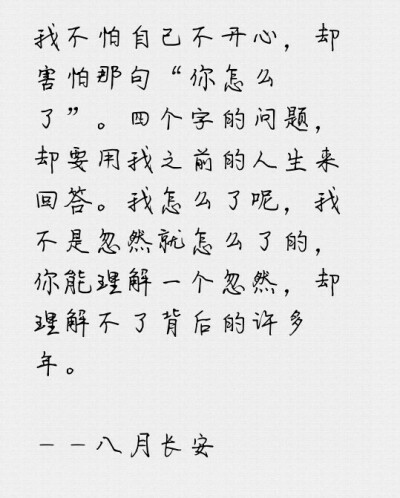 我不怕自己不开心，却
害怕那句“你怎么
了”。四个字的问题，
却要用我之前的人生来
回答。我怎么了呢，我
不是忽然就怎么了的，
你能理解一个忽然，却
理解不了背后的许多
年。
——八月长安